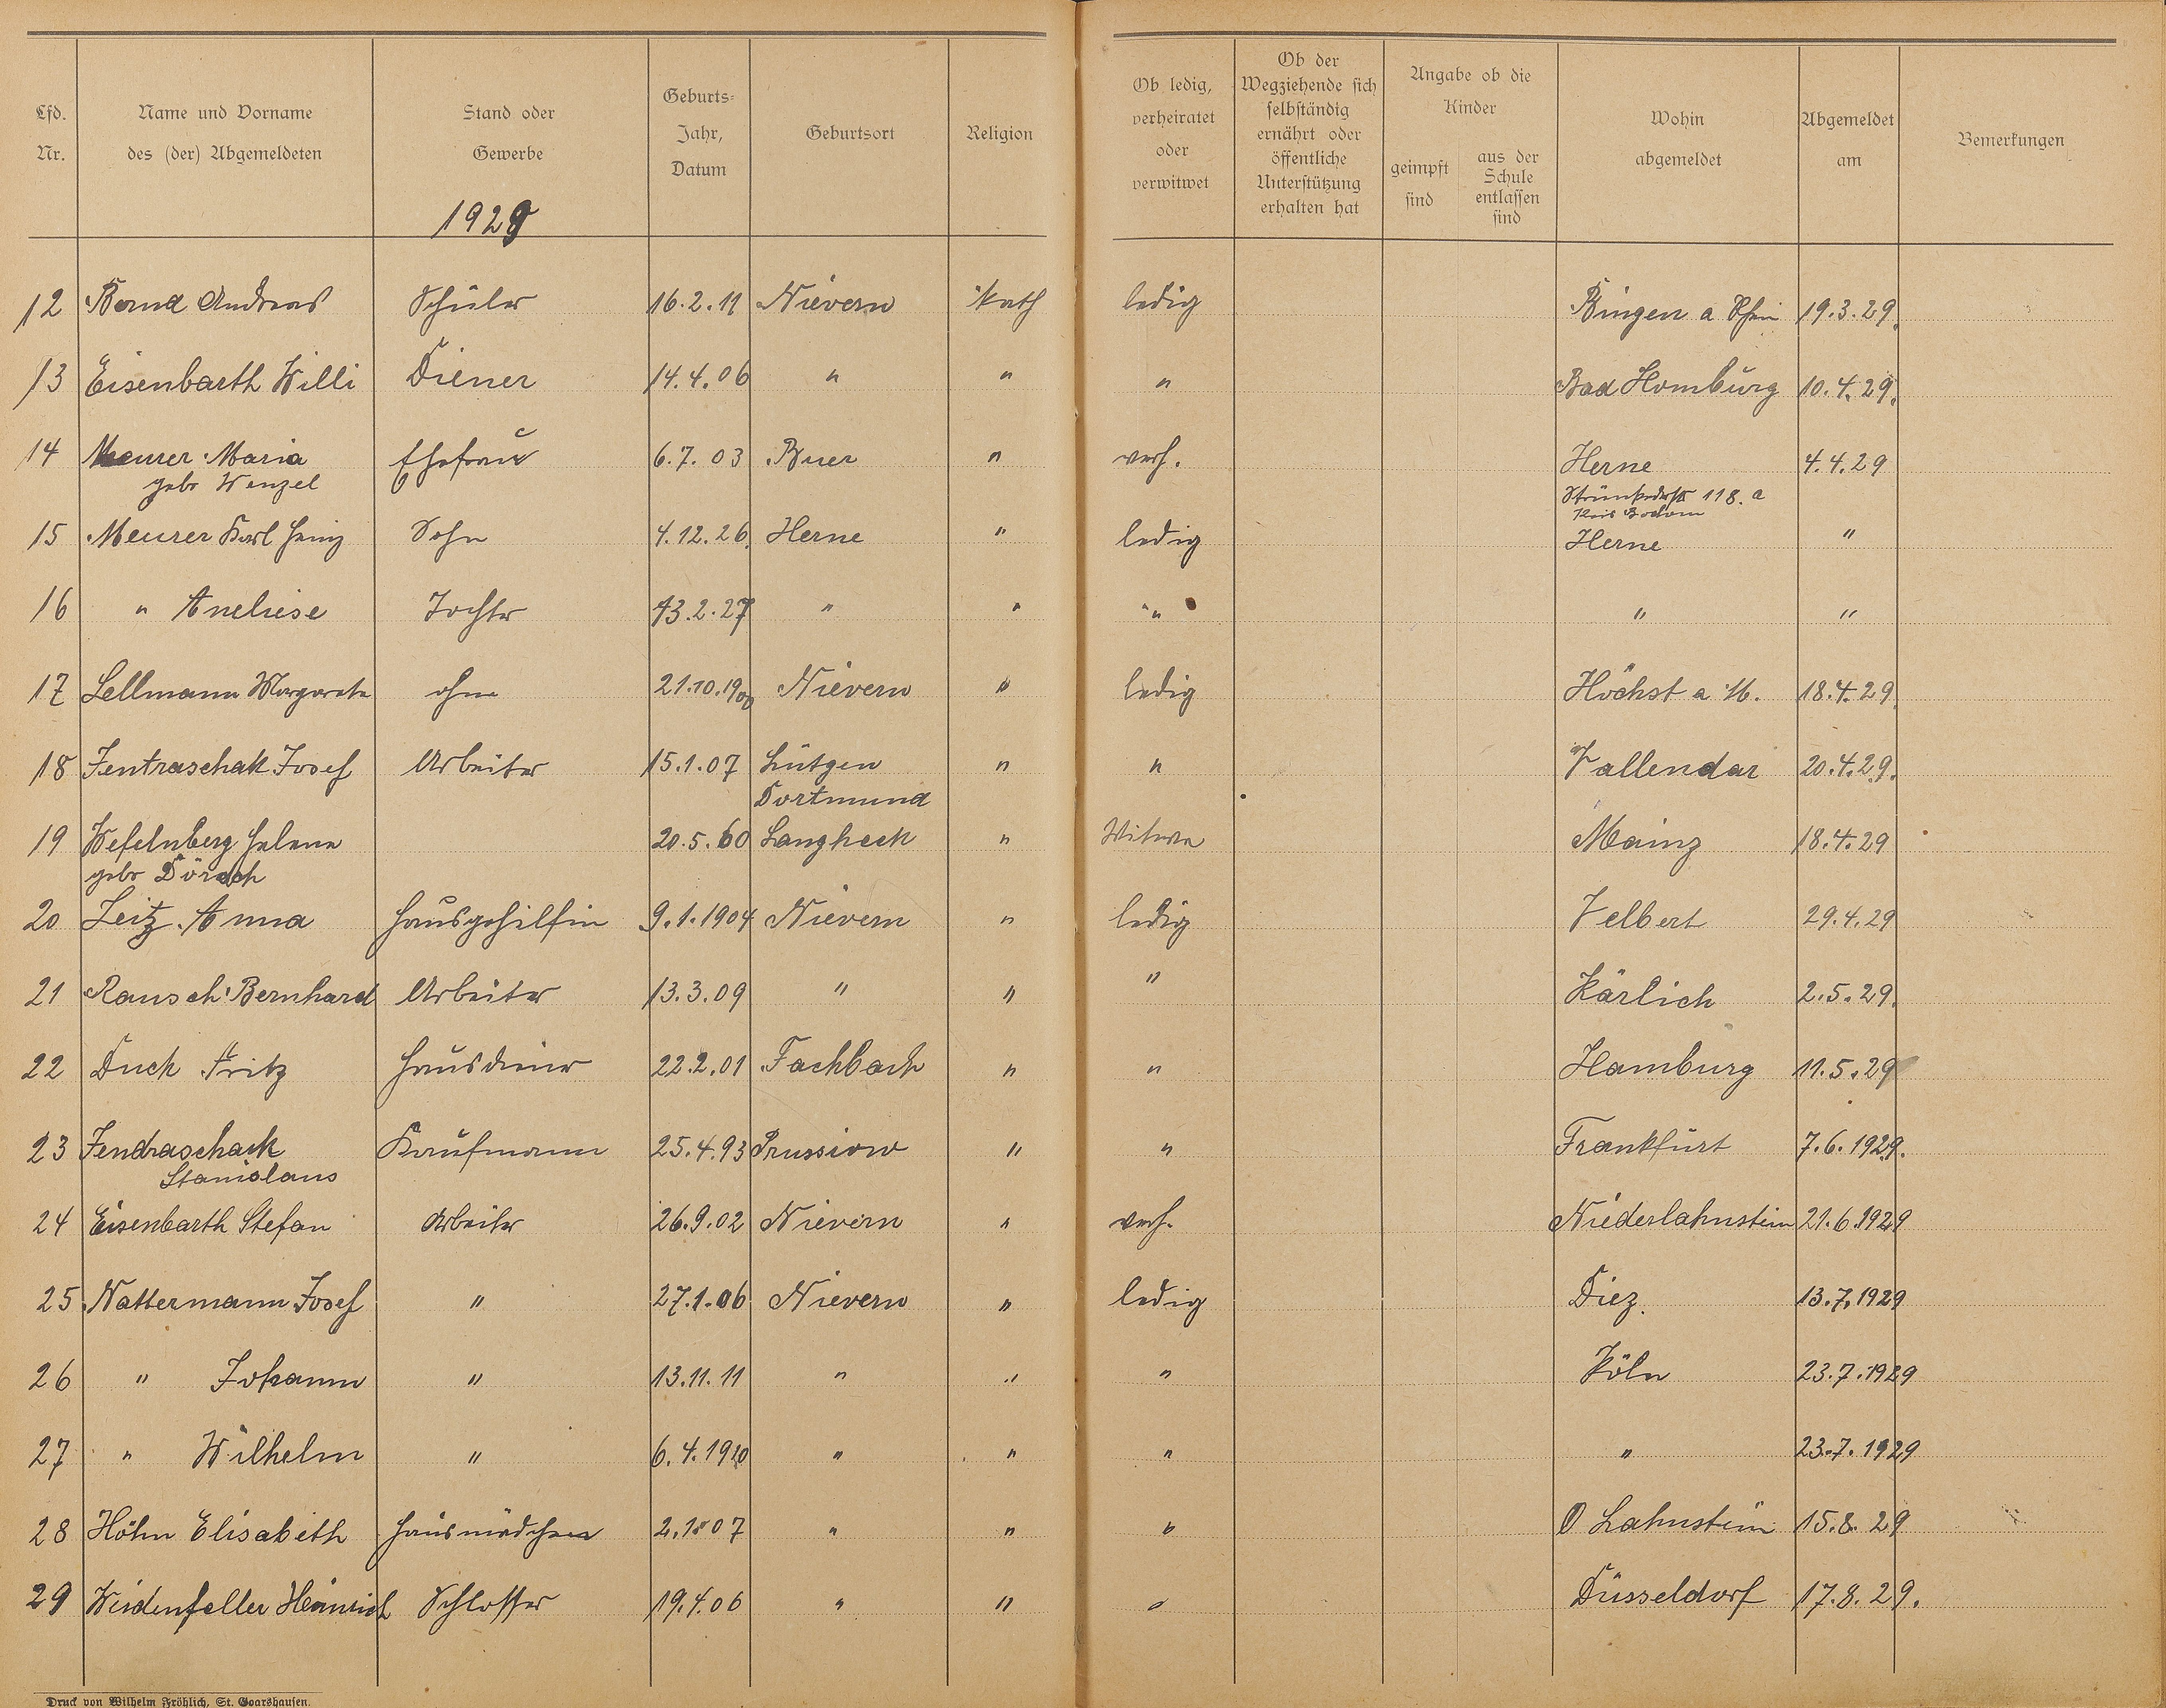 Lfd. Nr.
Name und Vorname des (der) Abgemeldeten
Stand oder Gewerbe
Geburts-Jahr, Datum
Geburtsort
Religion
Ob ledig, verheiratet oder verwitwet
Ob der Wegziehende sich selbständig ernährt oder öffentliche Unterstützung erhalten hat
Angabe ob die Kinder
geimpft sind
aus der Schule entlassen sind
Wohin abgemeldet
Abgemeldet am
Bemerkungen
1929
12 Bornd Andreas Schüler 16.2.11 Nievern kath ledig Bingen a Rhein 19.3.29.
13 Eisenbarth Willi Diener 14.4.06 " " " Bad Homburg 10.4.29.
14 Meurer Maria Ehefrau 6.7.03 Buer " verh. Herne 4.4.29
geb Wenzel 118.a
15 Meurer Karl Heinz Sohn 4.12.26. Herne " ledig Herne "
16 " Aneliese Tochter 13.2.27 " " " " "
17 Lellmann Margareta ohne 21.10.1900 Nievern " ledig Höchst a M. 18.4.29.
18 Jentraschak Josef Arbeiter 15.1.07 Lütgen " " Vallendar 20.4.29.
Dortmund
19 Wefelnberg Helene 20.5.60 Langheck " Witwe Mainz 18.4.29
geb Dörsch
20 Zeitz Anna Hausgehilfin 9.1.1904 Nievern " ledig Velbert 29.4.29
21 Rausch Bernhard Arbeiter 13.3.09 " " " Kärlich 2.5.29.
22 Duck Fritz Hausdiener 22.2.01 Fachbach " " Hamburg 11.5.29
23 Jendraschack Kaufmann 25.4.93 Prussiow " " Frankfurt 7.6.1929.
Stanislaus
24 Eisenbarth Stefan Arbeiter 26.9.02 Nievern " verh. Niederlahnstein 21.6.1929
25 Nattermann Josef " 27.1.06 Nievern " ledig Diez. 13.7.1929
26 " Johann " 13.11.11 " " " Köln 23.7.1929
27 " Wilhelm " 6.4.1910 " " " " 23.7.1929
28 Höhn Elisabeth Hausmädchen 2.1.07 " " " O Lahnstein 15.8.29
29 Weidenfeller Heinrich Schlosser 19.4.06 " " " Düsseldorf 17.8.29.
Druck von Wilhelm Fröhlich, St. Goarshausen.